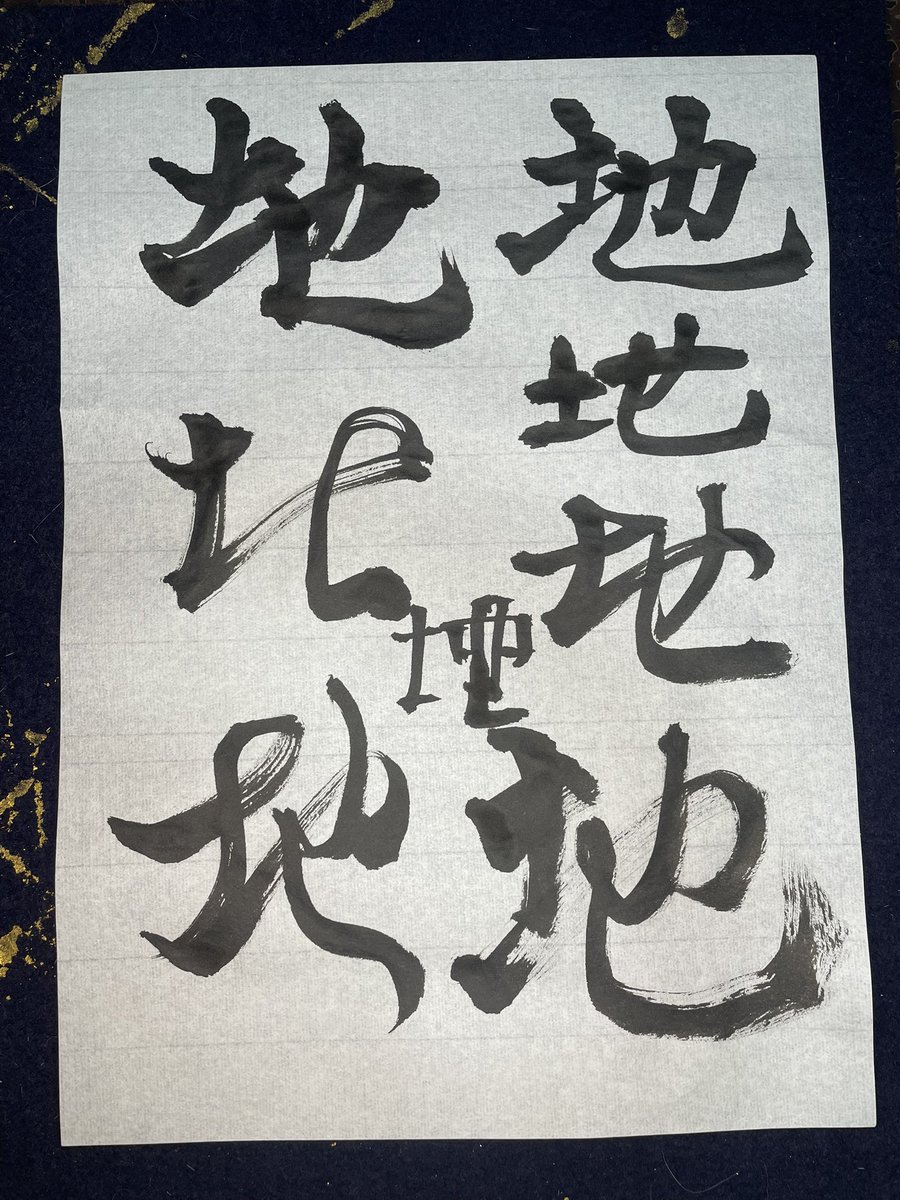 地
地
地
地
地
地
地